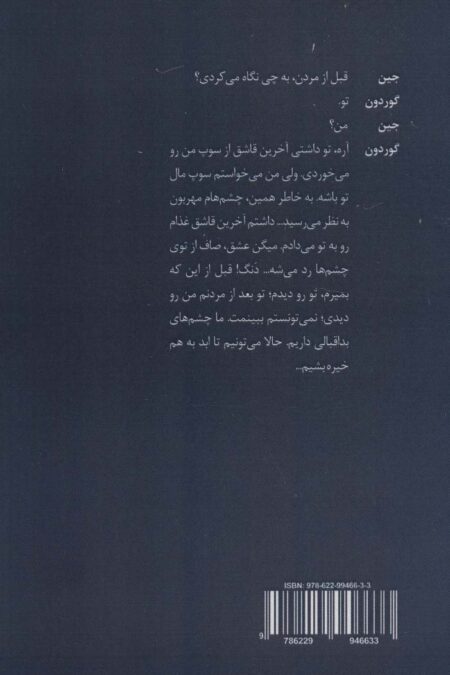 جین قبل از مردن، به چی نگاه می‌کردی؟
گوردون تو.
جین من؟
گوردون آره، تو داشتی آخرین قاشق از سوپ من رو
می‌خوردی. ولی من می‌خواستم سوپ مال
تو باشه. به خاطر همین، چشم‌هام مهربون
به نظر می‌رسید... داشتم آخرین قاشق غذام
رو به تو می‌دادم. میگن عشق، صاف از توی
چشم‌ها رد می‌شه... دَنگ! قبل از این که
بمیرم، تو رو دیدم؛ تو بعد از مردنم من رو
دیدی؛ نمی‌تونستم ببینمت. ما چشم‌های
بداقبالی داریم. حالا می‌تونیم تا ابد به هم
خیره بشیم...
ISBN: 978-622-99466-3-3
9 786229 946633